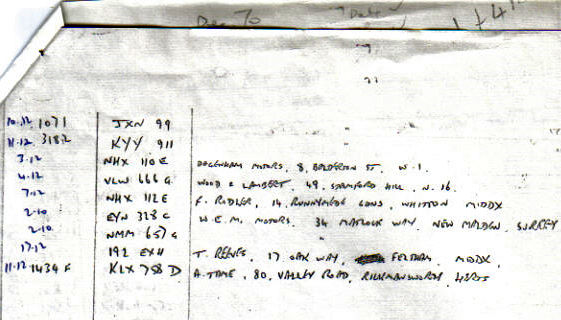 Dec 70
10.12 1071 JXN 99
11.12 3182 KYY 911
3.12 NHX 110 E DAGENHAM MOTORS, 8, BALDERTON ST. W.1.
4.12 VLW 666 G WOOD & LAMBERT, 49, STAMFORD HILL, N.16.
7.12 NHX 112 E F. RODLER, 14, RUNNYMEDE GDNS, WHITTON MIDDX
2.10 EYN 323 C W.E.M. MOTORS. 34 MATLOCK WAY, NEW MALDEN, SURREY
2.10 NMM 657 G
17.12 192 EXH T. REEVES, 17, OAK WAY, FELTHAM, MIDDX.
11.12 1434 F KLX 758 D A. TAME, 80, VALLEY ROAD, RICKMANSWORTH, HERTS